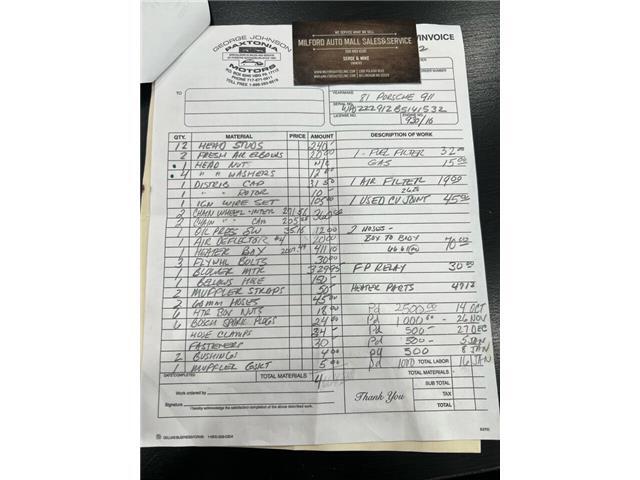 GEORGE JOHNSON
PAXTONIA
MOTORS
P.O. BOX 6042 HBG PA 17112
PHONE 717-671-0911
WE SERVICE WHAT WE SELL
MILFORD AUTO MALL SALES&SERVICE
SERGE & MIKE
INVOICE
ORDER NUMBER
TO:
YEAR/MAKE
81 PORSCHE 911
SERIAL NO.
LICENSE NO.
ENGINE NO.
930/16
QTY. MATERIAL PRICE AMOUNT DESCRIPTION OF WORK
12 HEAD STUDS 240-
2 FRESH AIR ELBOWS 20.00 1 - FUEL FILTER 32.00
1 HEAD NUT N/C GAS 15.00
4 " " WASHERS 12.00
1 DISTRIB CAP 31.50 1 AIR FILTER 19.00
1 " " ROTOR 10-
1 IGN WIRE SET 105.00 1 USED CV JOINT 45.00
2 CHAIN WHEEL-INTER
2 CHAIN " "
1 OIL PRESS SW 35.16 12.00 2 HOSES -
1 AIR DEFLECTOR #4 20.00 BOX TO BODY 70.00
1 HEATER BOX 411.10
3 FLYWHL BOLTS 30.00
1 BLOWER MTR 329.95 FP RELAY 30.00
1 BELLOWS HOSE 150-
2 MUFFLER STRAPS 50- HEATER PARTS 4912
2 60MM HOSES 45.00
6 HTR BOX NUTS 18.00 Pd 2500.00 14 OCT
6 BOSCH SPARK PLUGS 24.00 Pd 1000.00 - 26 NOV
HOSE CLAMPS 34- Pd 500- 27 DEC
FASTENERS 30 Pd 500- 5 JAN
2 BUSHINGS 4.00 pd 500 8 JAN
1 MUFFLER GSKT 5.00 pd 1000 TOTAL LABOR 16 JAN
DATE COMPLETED TOTAL MATERIALS TOTAL MATERIALS
Work ordered by
SUB TOTAL
Thank You
TAX
Signature
I hereby acknowledge the satisfactory completion of the above described work.
TOTAL